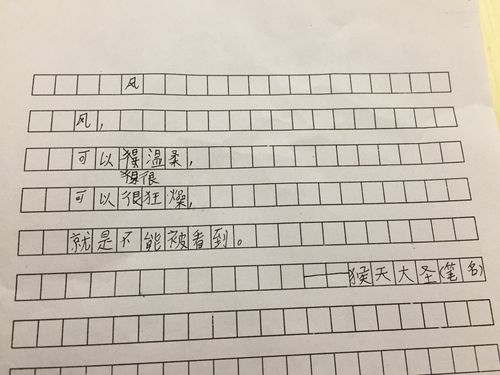 风
风，
可以温柔，
很
可以很狂燥，
就是不能被看到。
——猴天大圣(笔名)